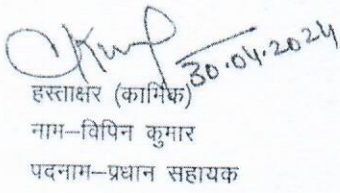 30.04.2024
हस्ताक्षर (कार्मिक)
नाम–विपिन कुमार
पदनाम–प्रधान सहायक